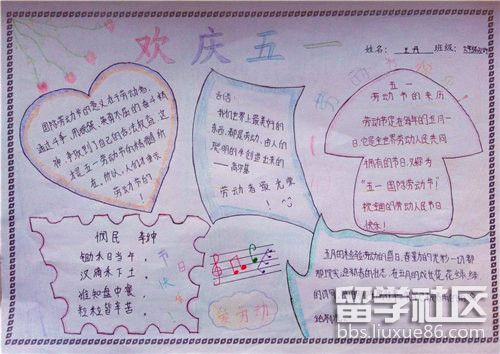 欢庆五一
姓名：王丹 班级：
国际劳动节的意义在于劳动者
通过斗争，用顽强、英勇不屈的奋斗精
神，争取到了自己的合法权益，这
是五一劳动节的精髓所
在。所以，人们才重视
劳动节的
名言：
我们世界上最美好的
东西，都是劳动、由人的
聪明的手创造出来的
——高尔基
劳动者最光荣
！
五一
劳动节的来历
劳动节定在每年的五月一
日，它是全世界劳动人民共同
拥有的节日，又称为
“五一国际劳动节”！
祝全国的劳动人民节日
快乐！
悯农 李绅
锄禾日当午，
汗滴禾下土。
谁知盘中餐，
粒粒皆辛苦。
节日快乐
爱劳动
留学社区
bbs.liuxue86.com